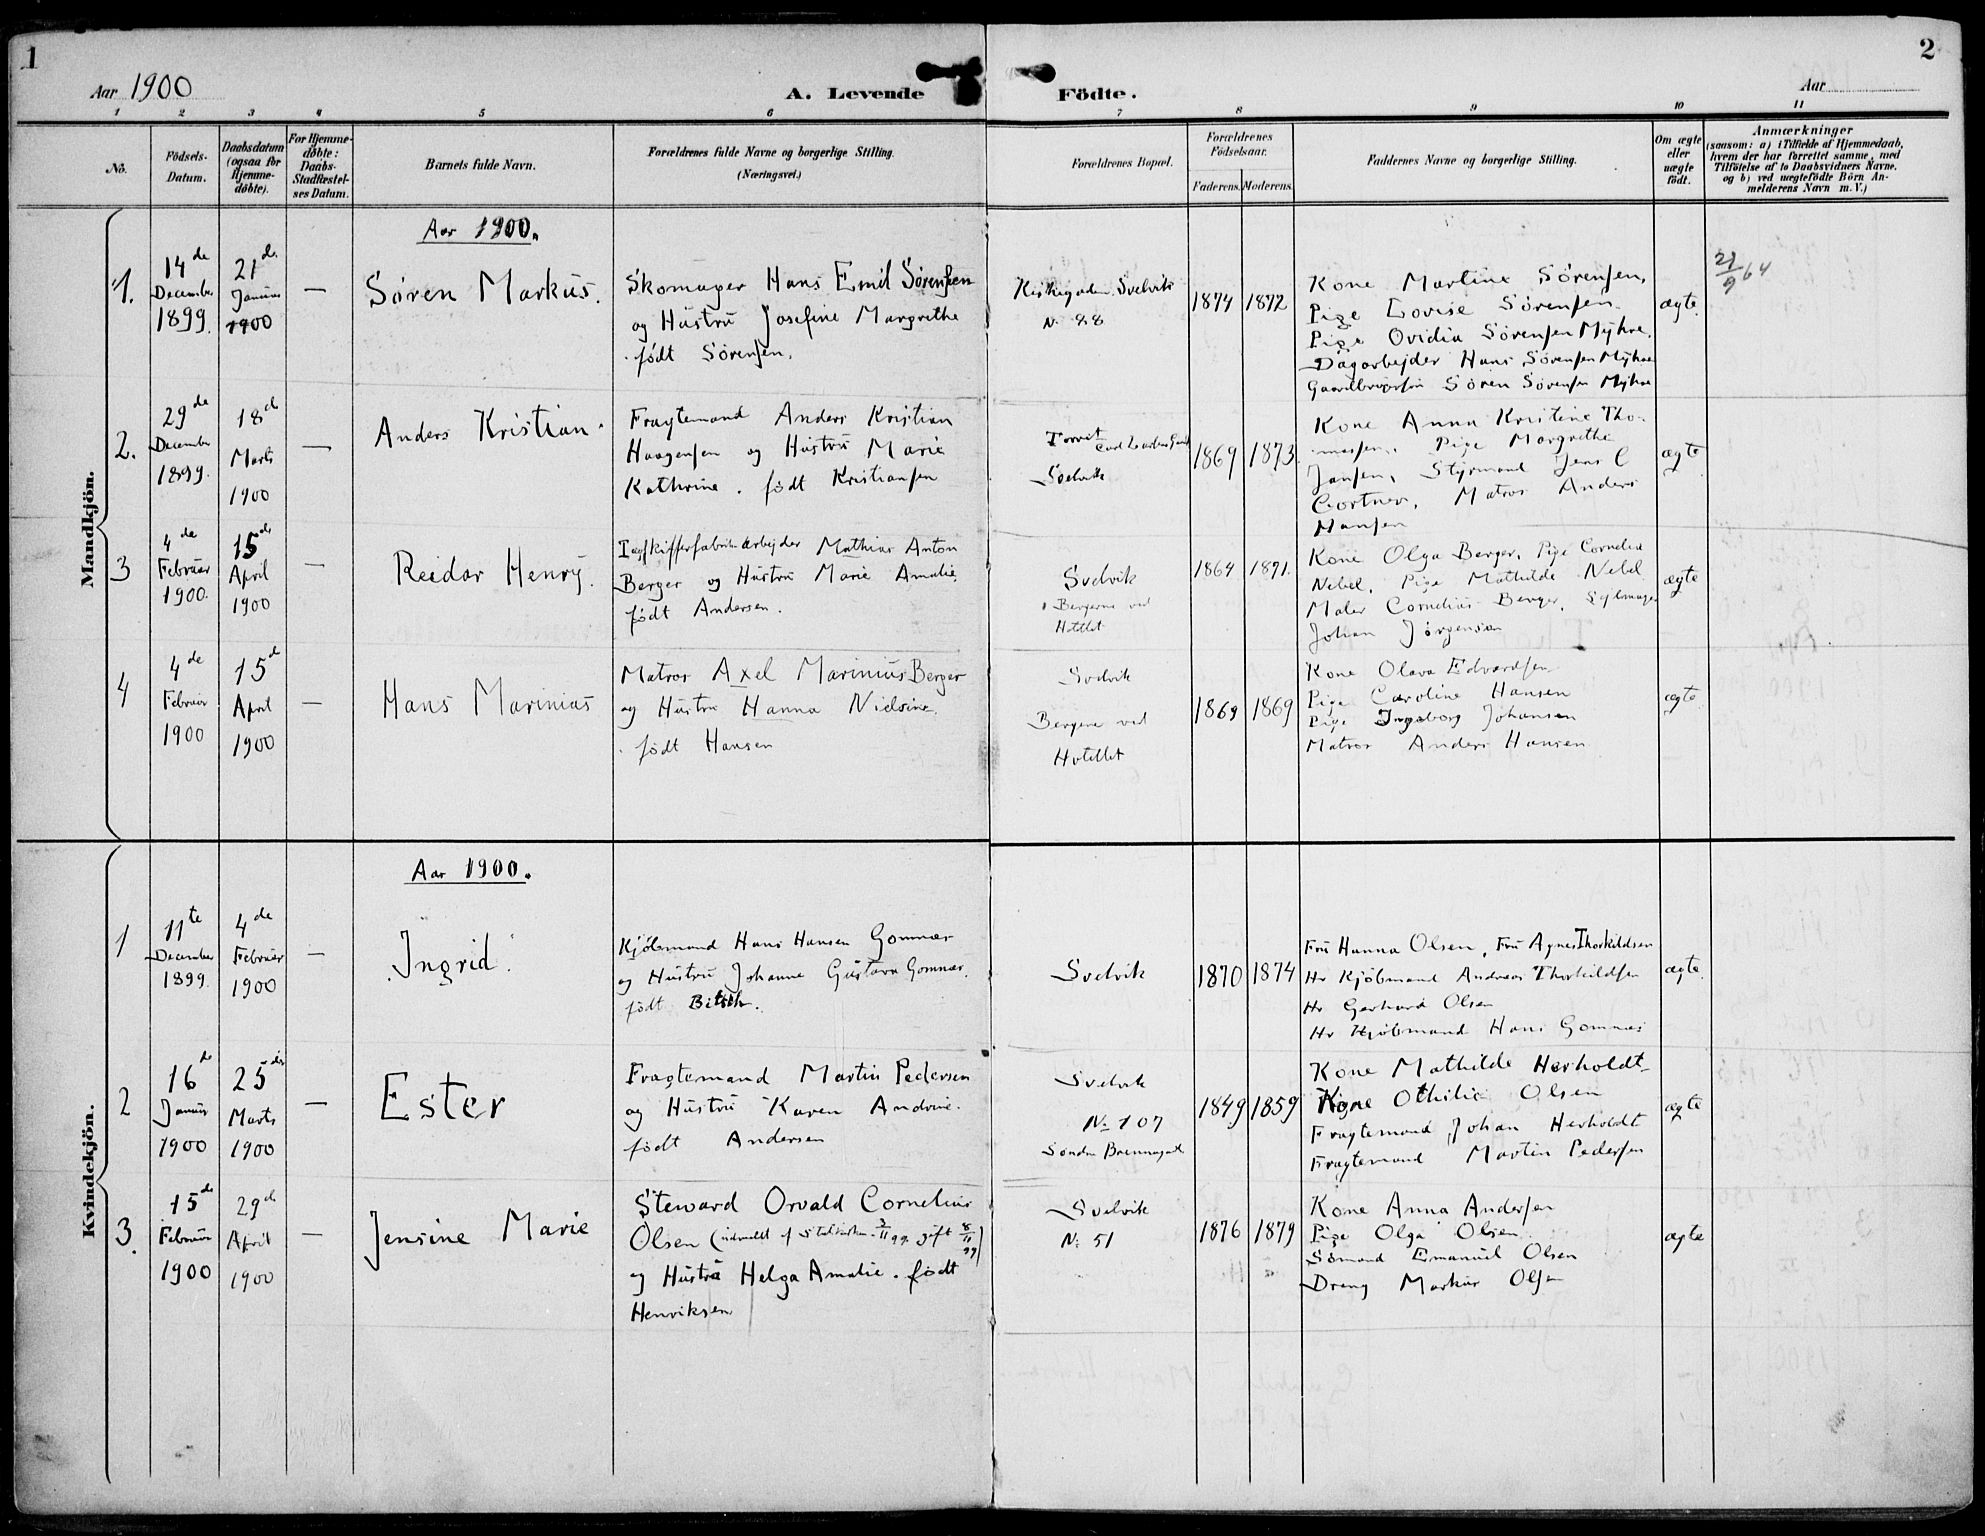 1
2
Aar 1900
A. Levende Födte.
Aar
1 2 3 4 5 6 7 8 9 10 11
No.
Födsels-
Datum.
Daabsdatum
(ogsaa for
Hjemme-
döbte).
For Hjemme-
döbte:
Daabs-
Stadfæstel-
ses Datum.
Barnets fulde Navn.
Forældrenes fulde Navne og borgerlige Stilling.
(Næringsvei.)
Forældrenes Bopæl.
Forældrenes
Födselsaar.
Faderens. Moderens.
Faddernes Navne og borgerlige Stilling.
Om ægte
eller
uægte
födt.
Anmærkninger
(saasom: a) i Tilfælde af Hjemmedaab,
hvem der har forrettet samme, med
Tilföielse af to Daabsvidners Navne,
og b) ved uægtefödte Börn An-
melderens Navn m. V.)
Mandkjön.
Aar 1900.
1.
14de
December
1899.
21de
Januar
1900
—
Søren Markus.
Skomager Hans Emil Sörensen
og Hustru Josefine Margrethe
født Sørensen.
Kirkegaden, Svelvik
N. 88
1874
1872
Kone Martine Sørensen,
Pige Lovise Sørensen
Pige Ovidia Sørensen Myhre.
Dagarbejder Hans Sørensen Myhre
Søren Sørensen Myhre
ægte.
21/9 64
2.
29de
December
1899.
18de
Marts
1900
—
Anders Kristian.
Fragtemand Anders Kristian
Haagensen og Hustru Marie
Kathrine. født Kristiansen
Torvet
Svelvik
1869
1873
Kone Anna Kristine Tho-
massen, Pige Margrethe
Jansen, Styrmand Jens C
Gortner, Matros Anders
Hansen
ægte
3
4de
Februar
1900.
15de
April
1900
—
Reidar Henry.
Mathias Anton
Berger og Hustru Marie Amalie,
født Andersen.
Svelvik
Bergerne ved
Hotellet
1864
1871.
Kone Olga Berger, Pige Cornelia
Nebel, Pige Mathilde Nebel
Maler Cornelius Berger, Sejlmager
Johan Jørgensen
ægte
4
4de
Februar
1900
15de
April
1900
—
Hans Marinius
Matros Axel Marinius Berger
og Hustru Hanna Nielsine.
født Hansen
Svelvik
Bergene ved
Hotellet
1869
1869
Kone Olava Edvardsen
Pige Caroline Hansen
Pige Ingeborg Johansen
Matros Anders Hansen
ægte
Kvindekjön.
Aar 1900.
1
11te
December
1899.
4de
Februar
1900
—
Ingrid.
Kjöbmand Hans Hansen Gomnæs
og Hustru Johanne Gustava Gomnæs.
født
Svelvik
1870
1874
Fru Hanna Olsen, Fru Agnes Thorkildsen
Hr Kjöbmand Andreas Thorkildsen
Hr Gerhard Olsen
Hr Kjøbmand Hans Gomnæs
ægte.
2
16de
Januar
1900
25de
Marts
1900
—
Ester
Fragtemand Martin Pedersen
og Hustru Karen Andrine.
født Andersen
Svelvik
No 107
Søndre
1849
1859
Kone Mathilde Herholdt
Kone Othilie Olsen
Fragtemand Johan Herholdt
Fragtemand Martin Pedersen
ægte
3.
15de
Februar
1900
29de
April
1900
—
Jensine Marie
Steward Osvald Cornelius
Olsen (udmeldt af Statskirken
og Hustru Helga Amalie. født
Henriksen
Svelvik
N. 51
1876
1879
Kone Anna Andersen
Pige Olga Olsen
Sømand Emanuel Olsen
Dreng Markus Olsen
ægte